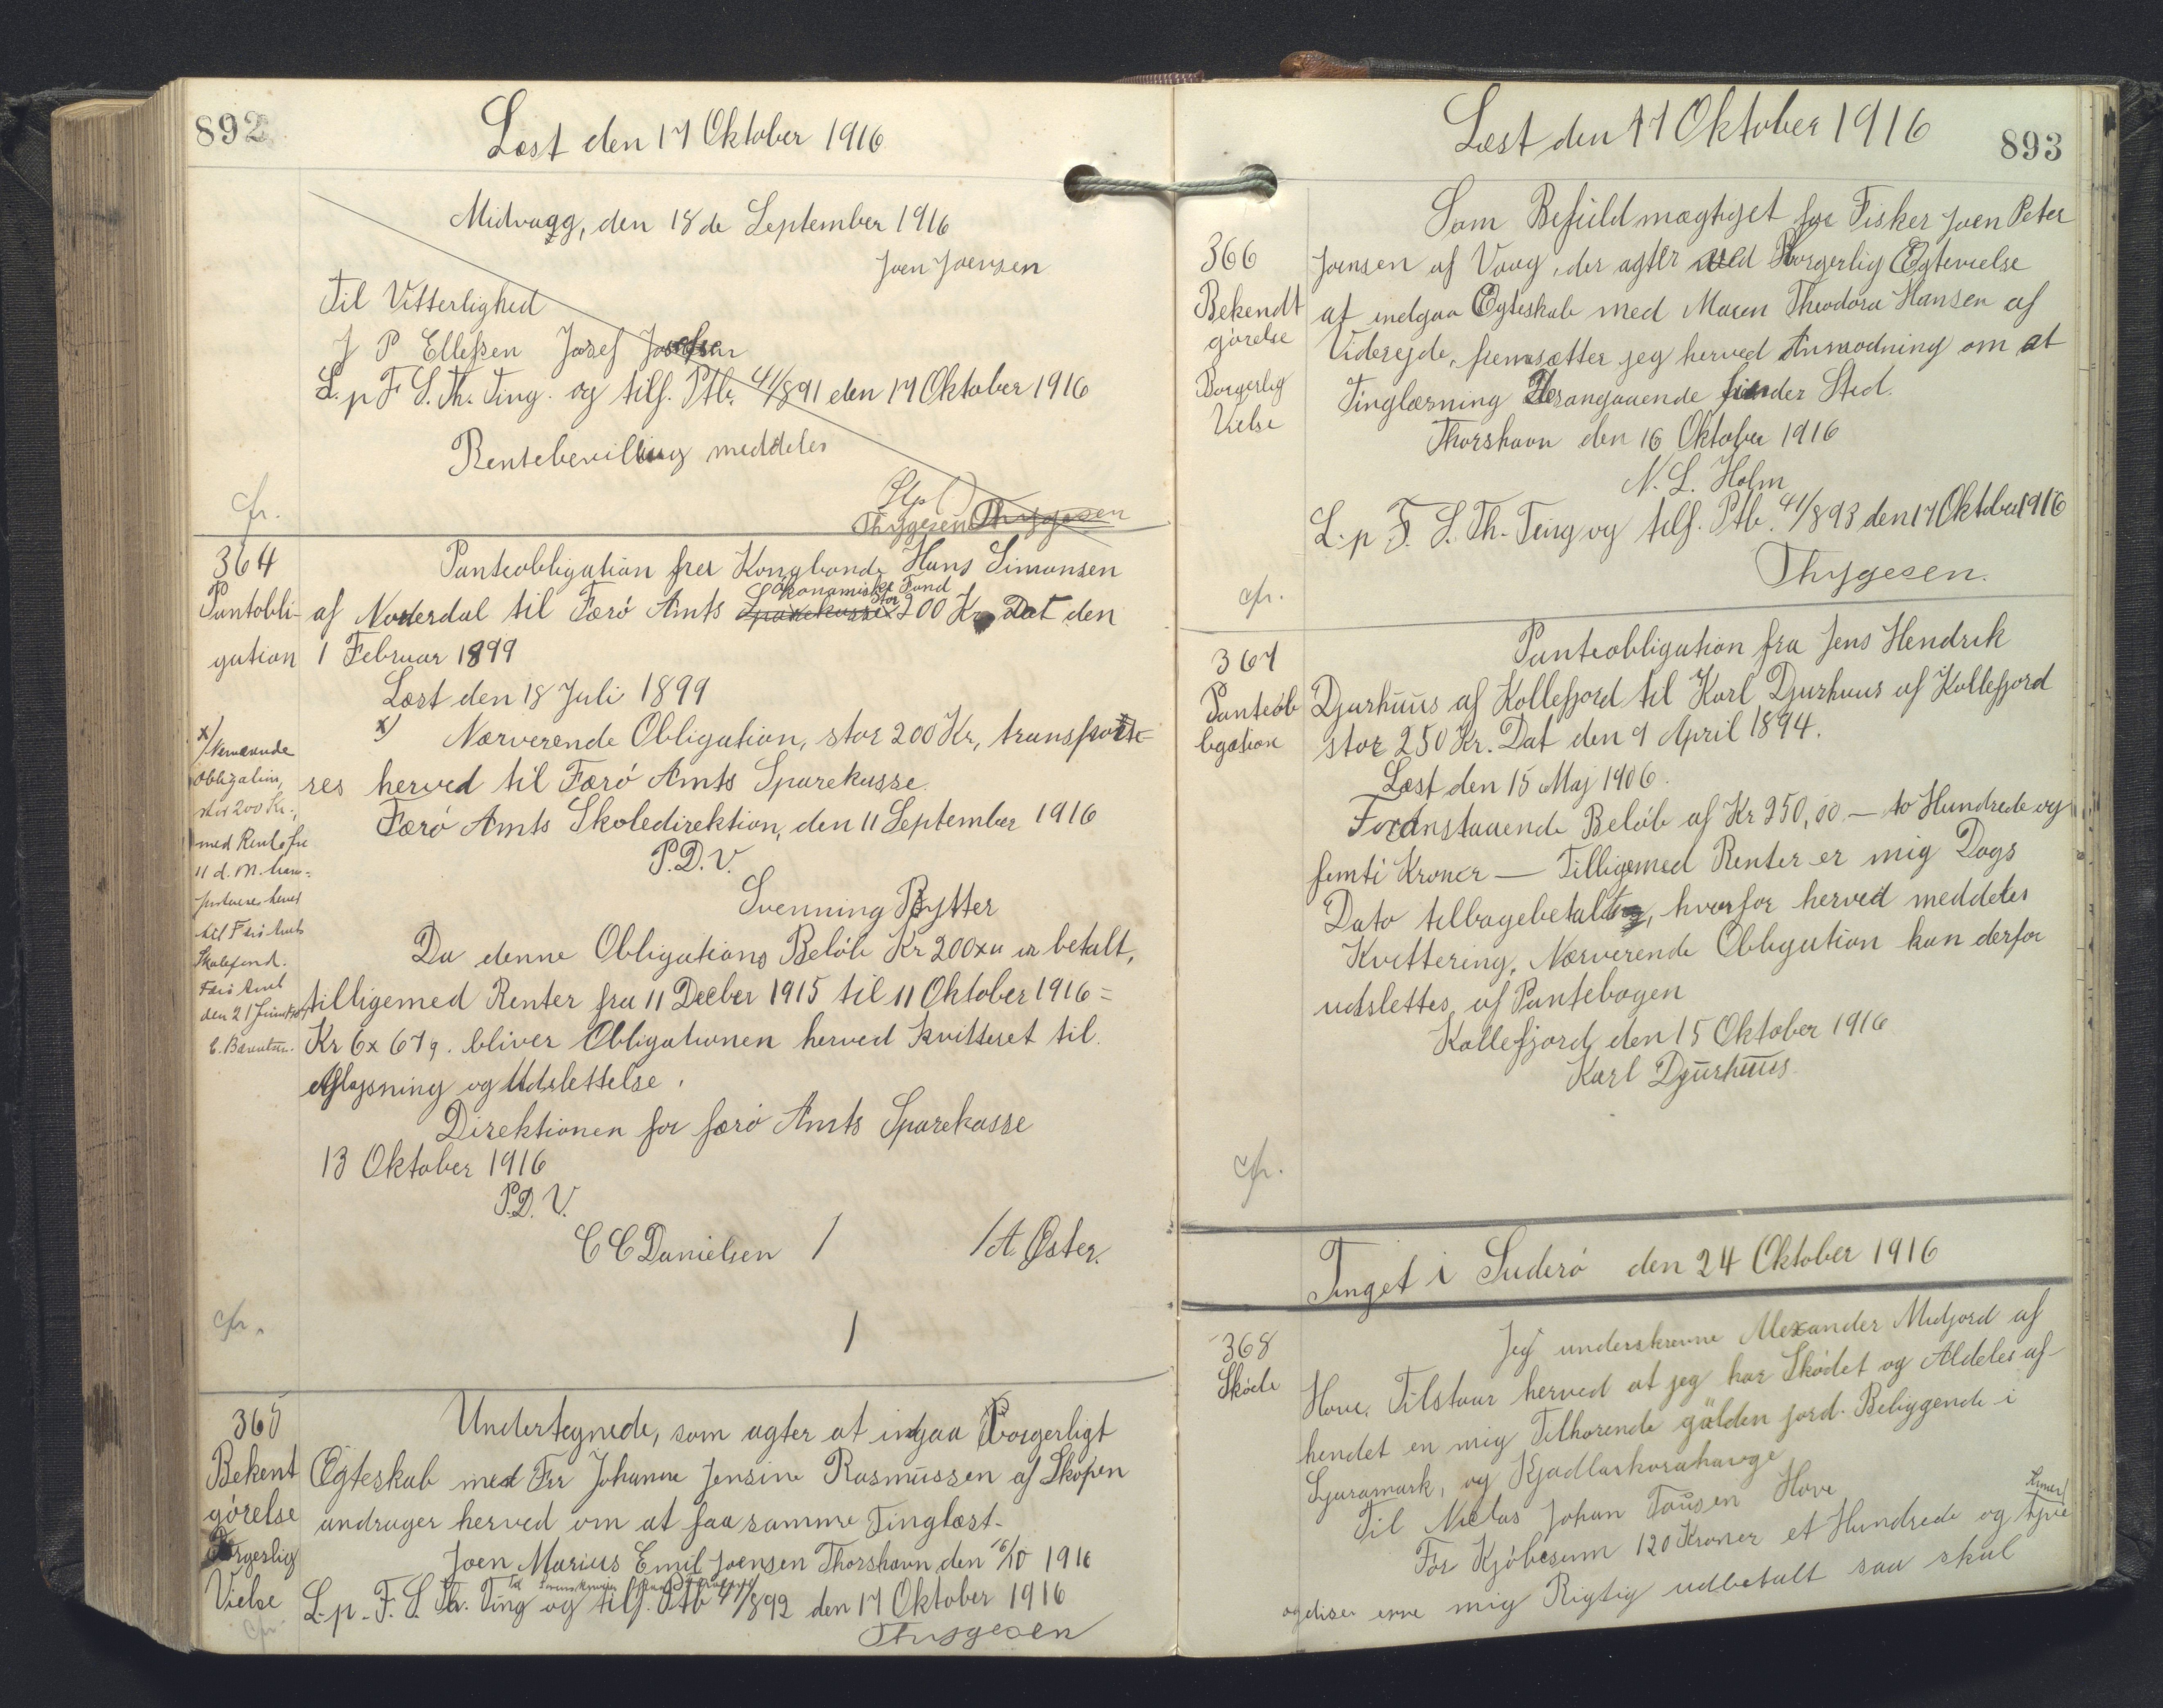 892
Læst den 17 Oktober 1916
Midvaag, den 18 de September 1916
Joen Joensen
Til Vitterlighed
J P Ellefsen Josef Josefsen
L. p F S. Th. Ting. og tilf. Ptb. 41/891 den 17 Oktober 1916
Rentebevilling meddeles
Stpl
Thygesen Thygesen
cfr.
364
Pantobli-
gation
Panteobligation fra Kongbonde Hans Simonsen
Økonomiske Fond
stor
af Norderdal til Færö Amts Sparekasse 200 Kr Dat den
1 Februar 1899
Læst den 18 Juli 1899
x) Nærverende Obligation, stor 200 Kr, transporte-
res herved til Færö Amts Sparekasse.
Færö Amts Skoledirektion, den 11 September 1916
P.D.V.
Svenning Rytter
x)
Obligation,
stor 200 Kr.,
med Rente fra
11 d. M. trans-
porteres herved
til Færö Amts
Skolefond.
Færö Amt
den 21 Juni
C. Bærentsen.
Da denne Obligations Belöb Kr 200 x u er betalt,
tilligemed Renter fra 11 Decber 1915 til 11 Oktober 1916 =
Kr 6 x 67 ø. bliver Obligationen herved kvitteret til
Aflysning og Udslettelse.
Direktionen for færö Amts Sparekasse
13 Oktober 1916
P.D.V.
C C Danielsen / / A. Øster.
/
cfr.
365
Bekent
görelse
Borgerlig
Vielse
cfr.
Undertegnede, som agter at indgaa Borgerligt
Ægteskab med Frr Johanne Jensine Rasmussen af Skopen
andrager herved om at faa samme Tinglæst-
Joen Marius Emil Joensen Thorshavn den 16/10 1916
L. p. F. S. Th. Ting og tilf. Ptb 41/892 den 17 Oktober 1916
Thygesen
Læst den 17 Oktober 1916
893
366
Bekendt
görelse
Borgerlig
Vielse
Som Befuldmægtiget for Fisker Joen Peter
Joensen af Vaag, der agter ved Borgerlig Ægtevielse
at indgaa Ægteskab med Maren Theodora Hansen af
Viderejde, fremsætter jeg herved Anmodning om at
Tinglæsning desangaaende finder Sted.
Thorshavn den 16 Oktober 1916
N. L. Holm
L. p F. S. Th. Ting og tilf. Ptb. 41/893 den 17 Oktober 1916
Thygesen.
cfr.
367
Panteob
ligation
Panteobligation fra Jens Hendrik
Djurhuus af Kollefjord til Karl Djurhuus af Kollefjord
stor 250 Kr. Dat den 9 April 1894.
Læst den 15 Maj 1906.
Foranstaaende Belöb af Kr 250,00 — to Hundrede og
femti Kroner — Tilligemed Renter er mig Dags
Dato tilbagebetalt, hvorfor herved meddeles
Kvittering. Nærverende Obligation kan derfor
udslettes af Pantebogen
Kollefjord, den 15 Oktober 1916
Karl Djurhuus
cfr.
Tinget i Suderö den 24 Oktober 1916
368
Sköde
Jeg underskrevne Alexander Midjord af
Hove. Tilstaar herved at jeg har Sködet og Aldeles af-
hendet en mig Tilhorende gälden jord. Beliggende i
Gjaramark, og Kjadlarkorahauge
Til Niclas Johan Tausen Hove
For Kjöbesum 120 Kroner et Hundrede og tyve
og disse erre mig Rigtig udbetalt saa skal